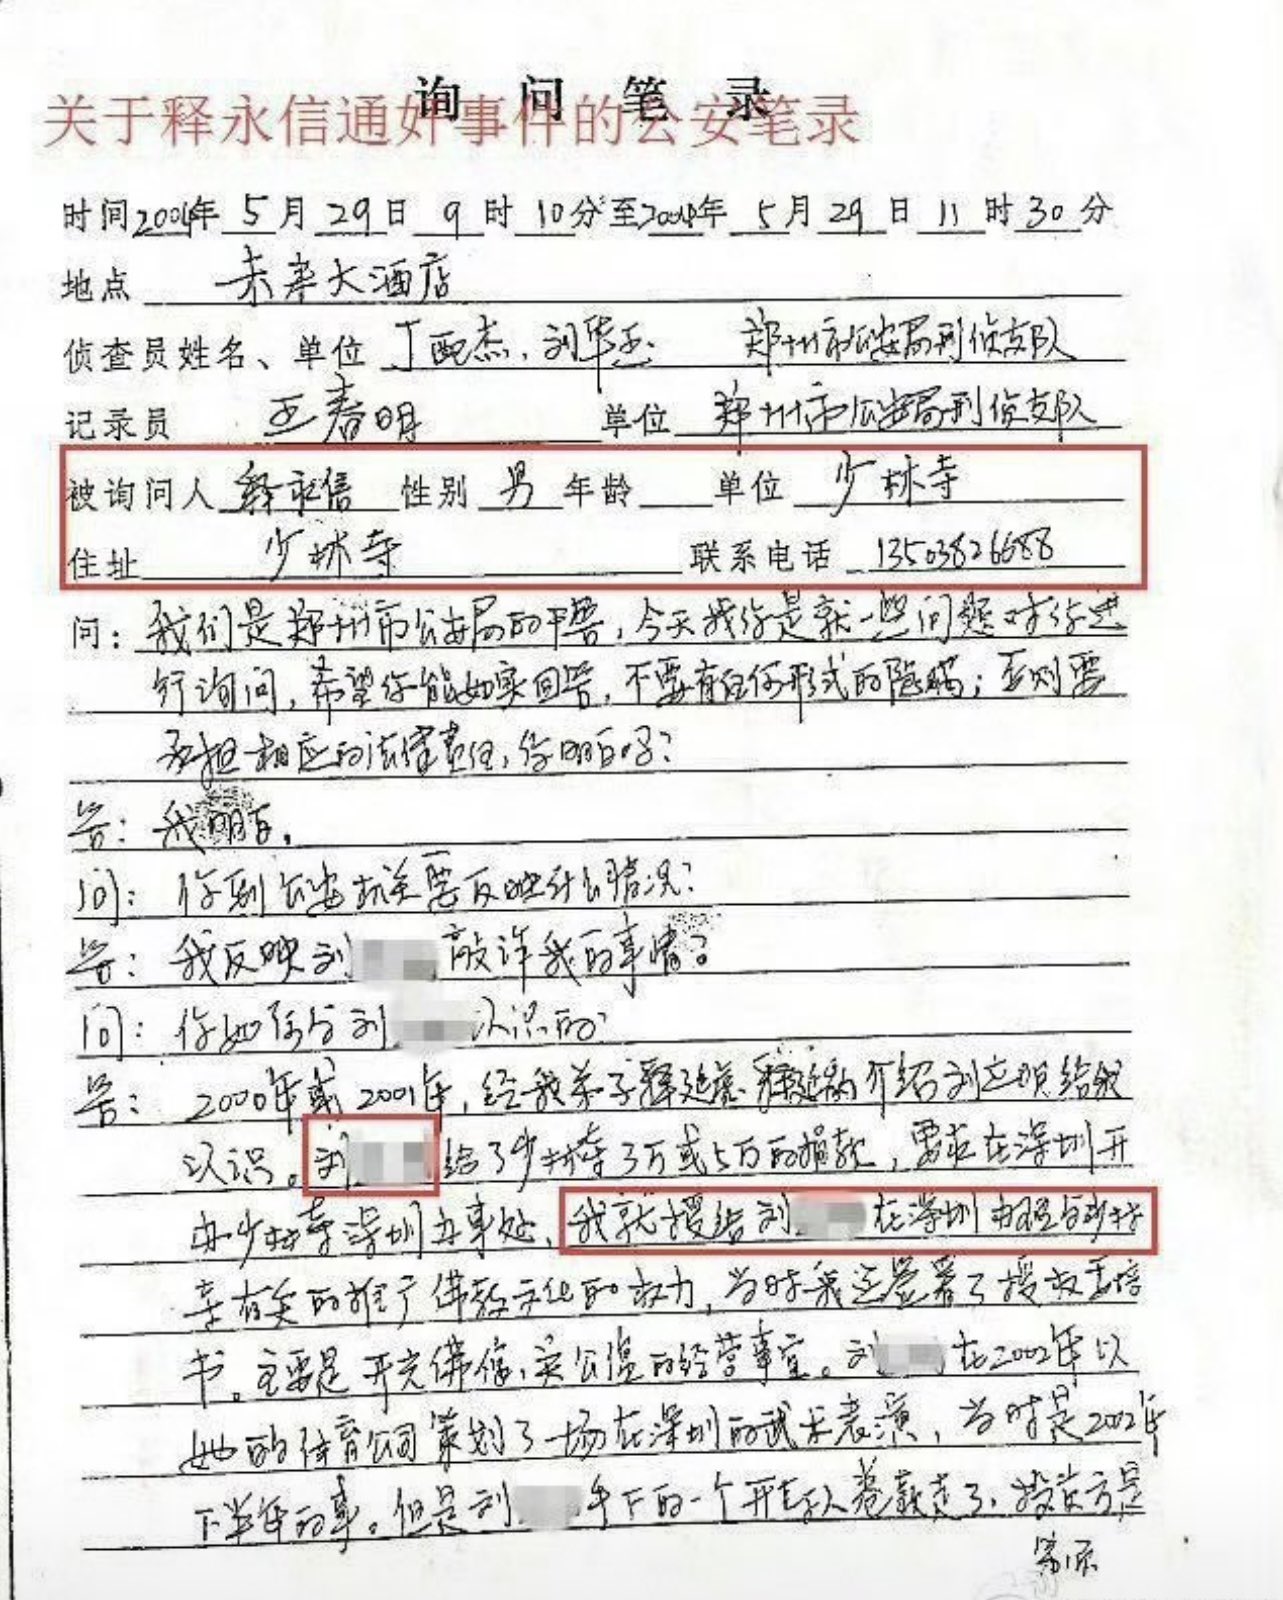 询问笔录
关于释永信通奸事件的公安笔录
时间2004年 5月29日 9时10分至2004年5月29日11时30分
地点 未来大酒店
侦查员姓名、单位 丁 杰、刘华 郑州市公安局刑侦支队
记录员 王春明 单位 郑州市公安局刑侦支队
被询问人 释永信 性别 男 年龄 单位 少林寺
住址 少林寺 联系电话 13503826688
问:我们是郑州市公安局的干警,今天找你是就一些问题对你进
行询问,希望你能如实回答,不要有任何形式的隐瞒;否则要
承担相应的法律责任,你明白吗?
答:我明白。
问:你到公安机关要反映什么情况?
答:我反映刘 敲诈我的事情?
问:你如何与刘 认识的?
答:2000年或2001年,经我弟子释延 、释延 介绍刘 给我
认识。刘 给了少林寺3万或5万的捐款,要求在深圳开
办少林寺深圳办事处,我就授给刘 在深圳办理与少林
寺有关的推广佛教文化的权力,当时我还签署了授权委托
书。主要是开光佛像、 的经营事宜。刘 在2002年以
她的体育公司策划了一场在深圳的武术表演,当时是2002年
下半年的事。但是刘 手下的一个 人卷款走了,投资方是
第1页